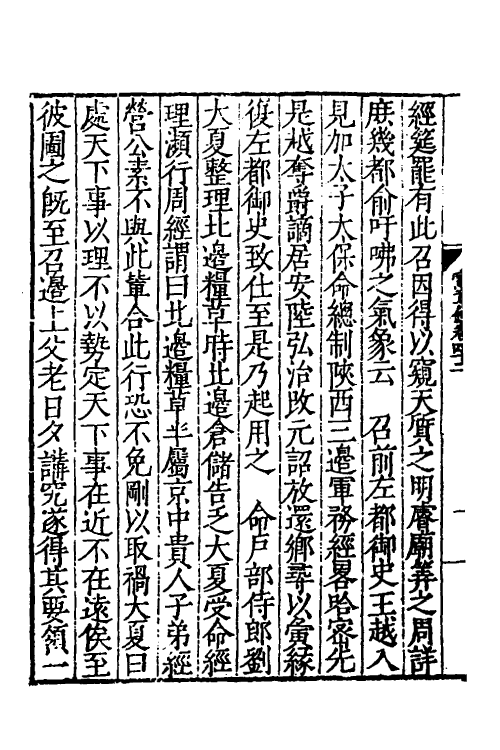 經筵罷有此召因得以窺天質之明睿廟筭之周詳
庶幾都俞吁咈之氣象云　召前左都御史王越入
見加太子太保命總制陝西三邊軍務經畧哈密先
是越奪爵謫居安陸弘治改元詔放還鄉尋以夤緣
復左都御史致仕至是乃起用之　命戶部侍郎劉
大夏整理北邊糧草時北邊倉儲告乏大夏受命經
理瀕行周經謂曰北邊糧草半屬京中貴人子弟經
營公素不與此輩合此行恐不免剛以取禍大夏曰
處天下事以理不以勢定天下事在近不在遠俟至
彼圖之旣至召邊上父老日夕講究遂得其要領一